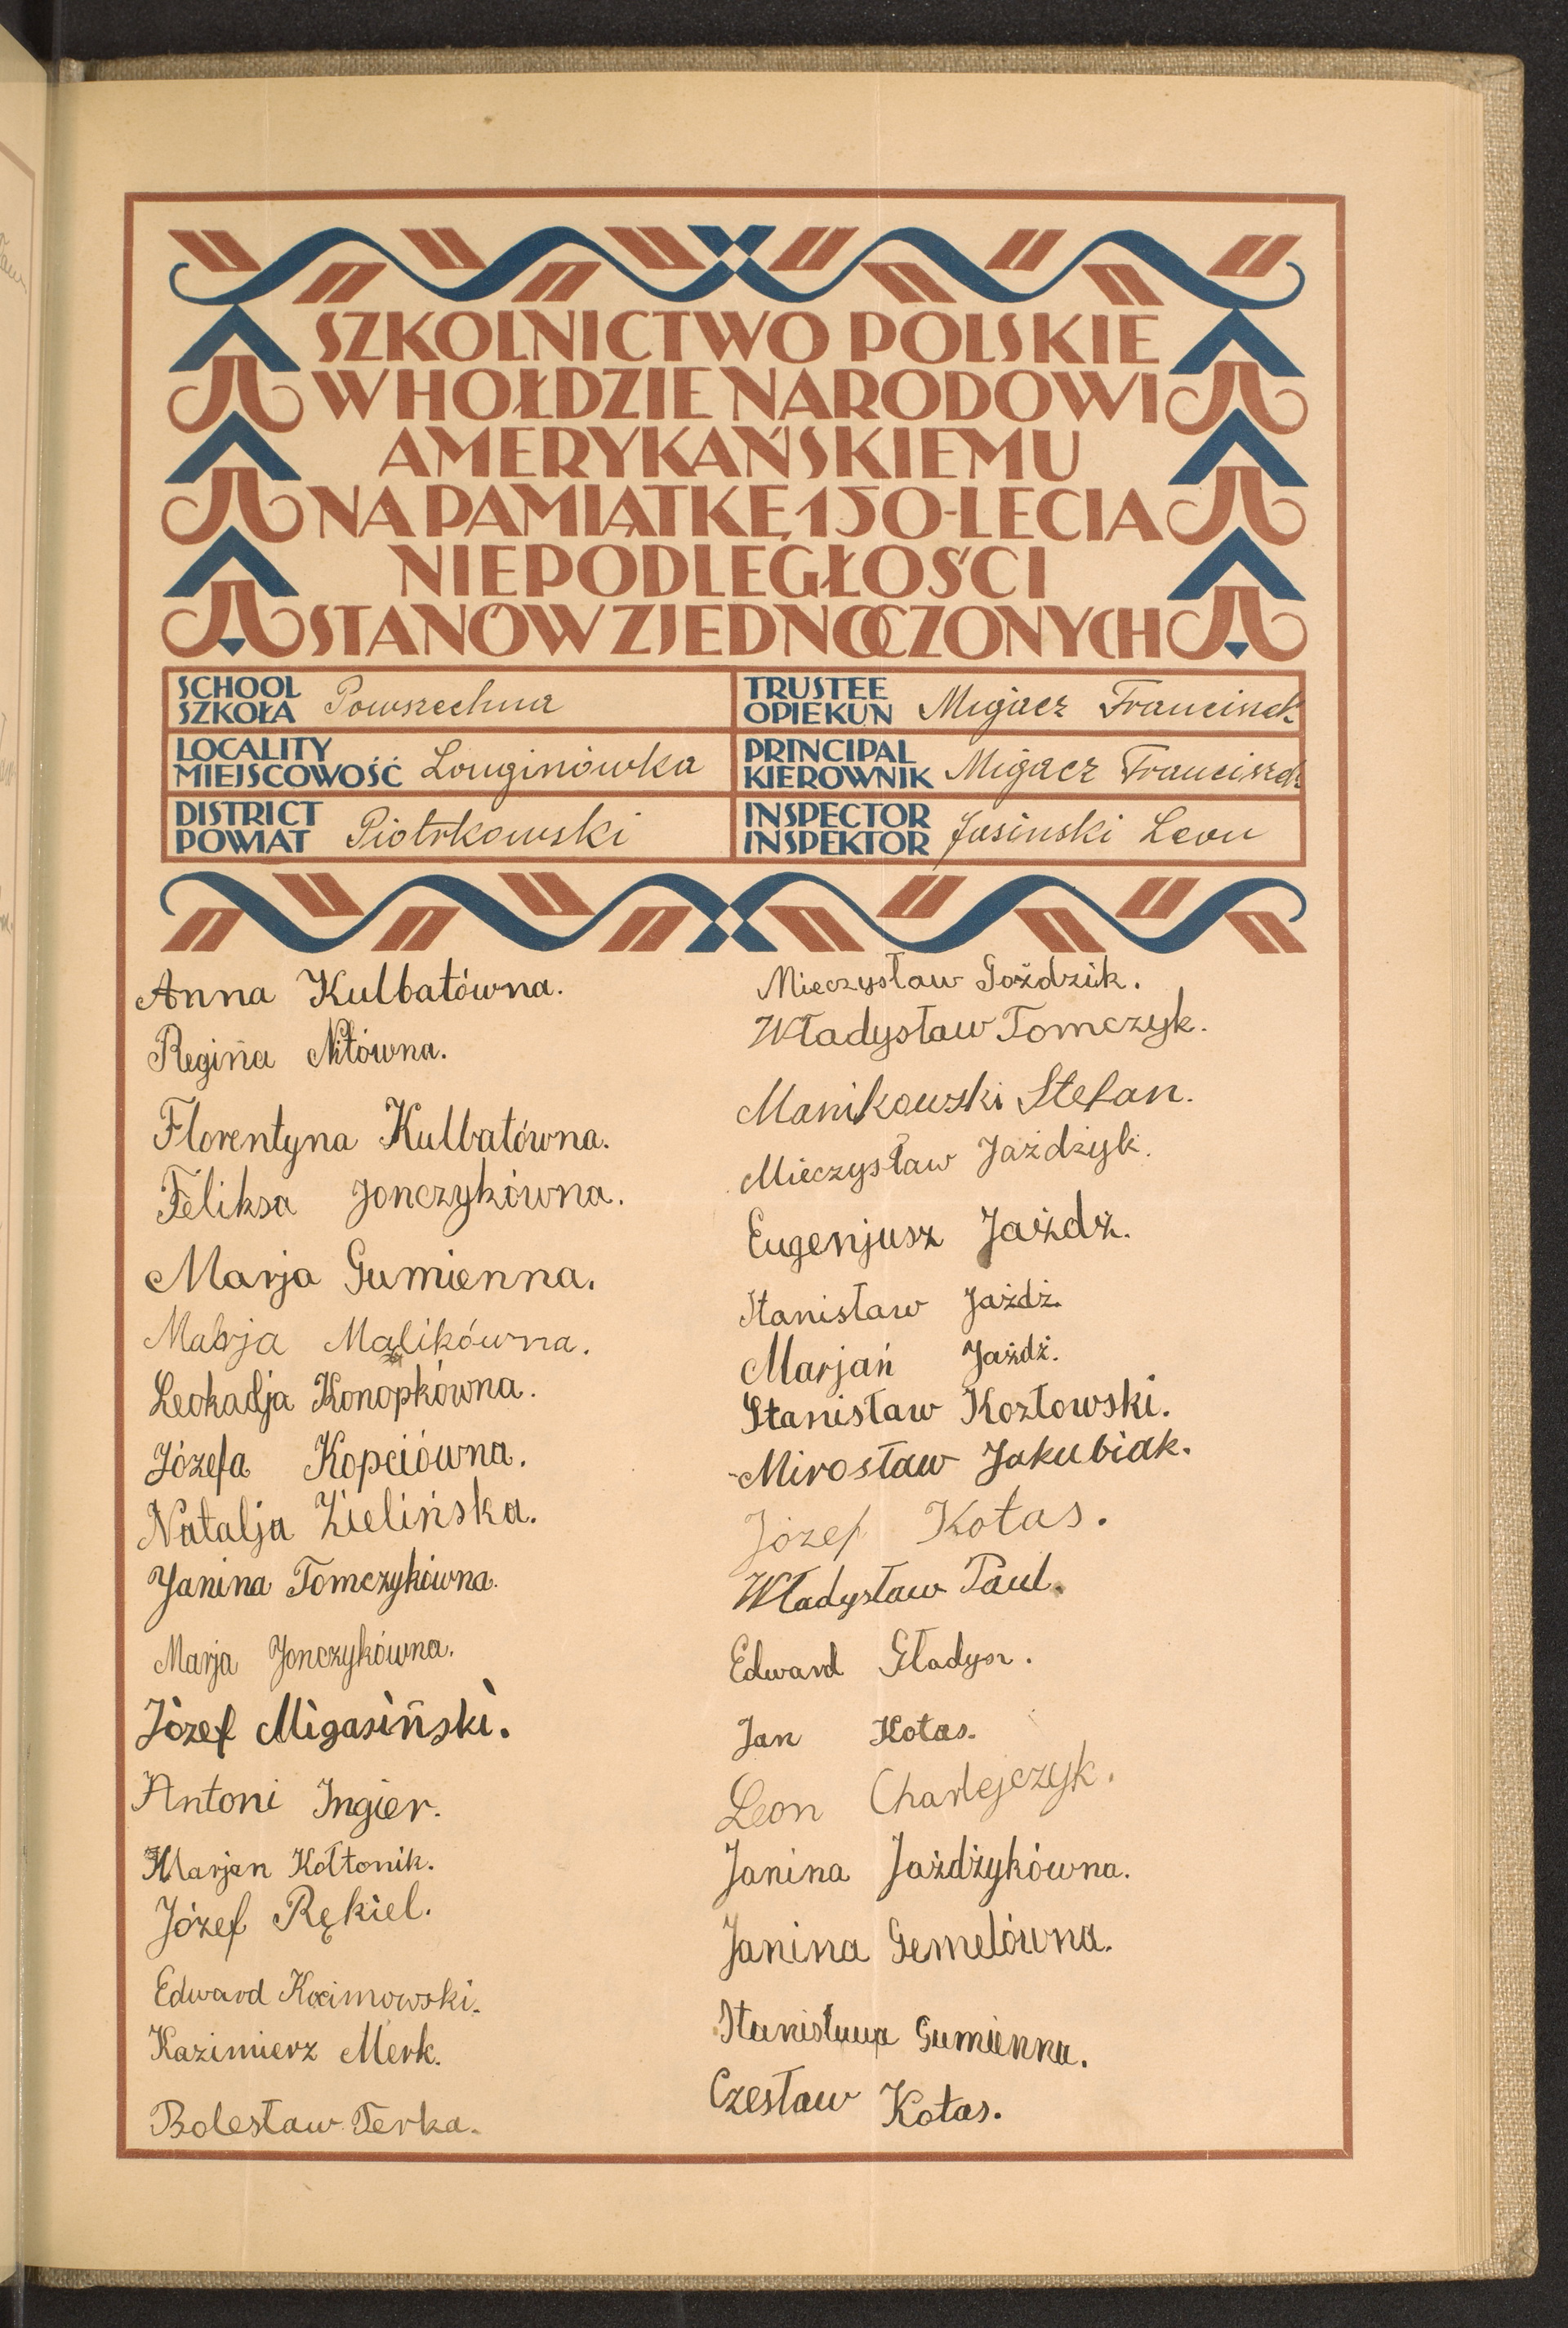 SZKOLNICTWO POLSKIE
W HOŁDZIE NARODOWI
AMERYKAŃSKIEMU
NA PAMIĄTKĘ 150-LECIA
NIEPODLEGŁOŚCI
STANÓW ZJEDNOCZONYCH
SCHOOL
SZKOŁA Powszechna
LOCALITY
MIEJSCOWOŚĆ Longinówka
DISTRICT
POWIAT Piotrkowski
TRUSTEE
OPIEKUN Migacz Francisek
PRINCIPAL
KIEROWNIK Migacz Franciszek
INSPECTOR
INSPEKTOR Jasinski Leon
Anna Kulbatówna.
Regina Nitówna.
Florentyna Kulbatówna.
Feliksa Jonczykówna.
Marja Gumienna.
Marja Malikówna.
Leokadja Konopkówna.
Józefa Kopciówna.
Natalja Zielińska.
Janina Tomczykówna.
Marja Jonczykówna.
Józef Migasiński.
Antoni Ingier.
Marjan Kołtonik.
Józef Rękiel.
Edward Kocimowski.
Kazimierz Merk.
Bolesław Terka.
Mieczysław Goździk.
Władysław Tomczyk.
Manikowski Stefan.
Mieczysław Jażdżyk.
Eugenjusz Jażdż.
Stanisław Jażdż.
Marjań Jażdż.
Stanisław Kozłowski.
Mirosław Jakubiak.
Józef Kotas.
Władysław Paul.
Edward Gładysz.
Jan Kotas.
Leon Charlejczyk.
Janina Jażdżykówna.
Janina Gemelówna.
Stanisława Gumienna.
Czesław Kotas.